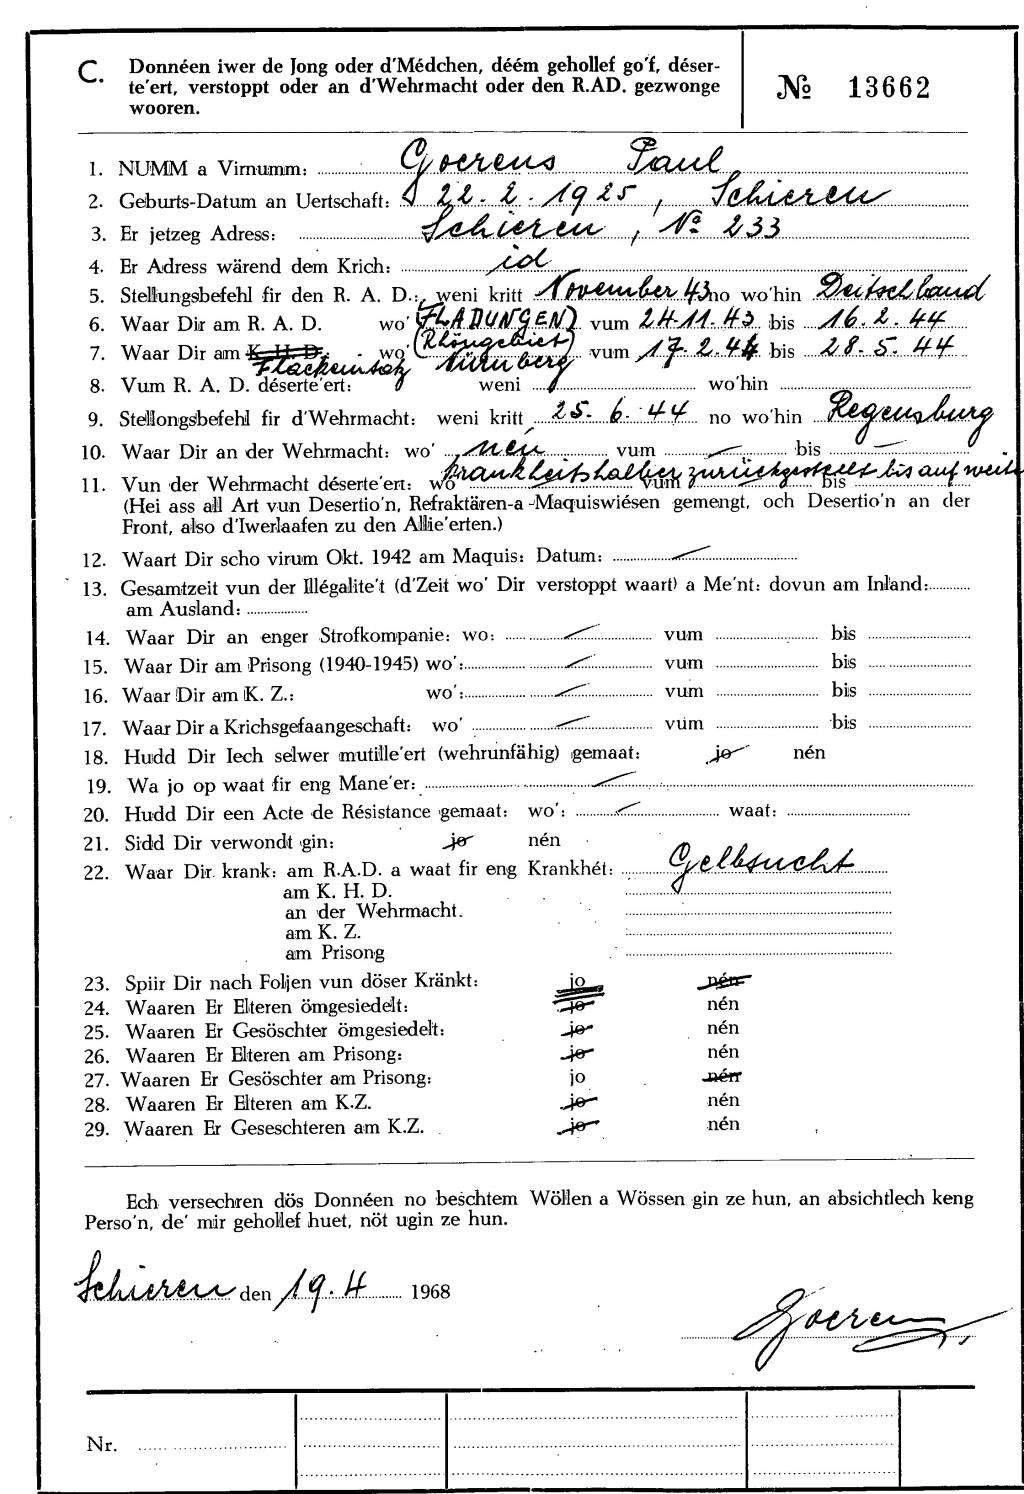 C. Donnéen iwer de Jong oder d'Médchen, déém gehollef go'f, déser-
te'ert, verstoppt oder an d'Wehrmacht oder den R.AD. gezwonge
wooren.
№ 13662
1. NUMM a Virnumm: Goerens Paul
2. Geburts-Datum an Uertschaft: 22.2.1925, Schieren
3. Er jetzeg Adress: Schieren, No 233
4. Er Adress wärend dem Krich: id
5. Stellungsbefehl fir den R. A. D.: weni kritt November 43 no wo'hin Deitschland
6. Waar Dir am R. A. D. wo' (FLADUNGEN) vum 24.11.43 bis 16.2.44
(Rhöngebiet)
7. Waar Dir am K. H. D. wo' Nürnberg vum 17.2.44 bis 28.5.44
Flackeinsatz
8. Vum R. A. D. déserte'ert: weni wo'hin
9. Stellongsbefehl fir d'Wehrmacht: weni kritt 25.6.44 no wo'hin Regensburg
10. Waar Dir an der Wehrmacht: wo' nén vum — bis —
krankheitshalber zurückgestellt bis auf weit
11. Vun der Wehrmacht déserte'ert: wo' vum bis
(Hei ass all Art vun Desertio'n, Refraktären-a -Maquiswiésen gemengt, och Desertio'n an der
Front, also d'Iwerlaafen zu den Allie'erten.)
12. Waart Dir scho virum Okt. 1942 am Maquis: Datum: —
13. Gesamtzeit vun der Illégalite't (d'Zeit wo' Dir verstoppt waart) a Me'nt: dovun am Inland:
am Ausland:
14. Waar Dir an enger Strofkompanie: wo: — vum bis
15. Waar Dir am Prisong (1940-1945) wo': — vum bis
16. Waar Dir am K. Z.: wo': — vum bis
17. Waar Dir a Krichsgefaangeschaft: wo' — vum bis
18. Hudd Dir Iech selwer mutille'ert (wehrunfähig) gemaat: jo nén
19. Wa jo op waat fir eng Mane'er: —
20. Hudd Dir een Acte de Résistance gemaat: wo': — waat:
21. Sidd Dir verwondt gin: jo nén
22. Waar Dir krank: am R.A.D. a waat fir eng Krankhét: Gelbsucht
am K. H. D.
an der Wehrmacht.
am K. Z.
am Prisong
23. Spiir Dir nach Foljen vun döser Kränkt: jo nén
24. Waaren Er Elteren ömgesiedelt: jo nén
25. Waaren Er Gesöschter ömgesiedelt: jo nén
26. Waaren Er Elteren am Prisong: jo nén
27. Waaren Er Gesöschter am Prisong: jo nén
28. Waaren Er Elteren am K.Z. jo nén
29. Waaren Er Geseschteren am K.Z. jo nén
Ech versechren dös Donnéen no beschtem Wöllen a Wössen gin ze hun, an absichtlech keng
Perso'n, de' mir gehollef huet, nöt ugin ze hun.
Schieren den 19.4 1968
Goerens
Nr.